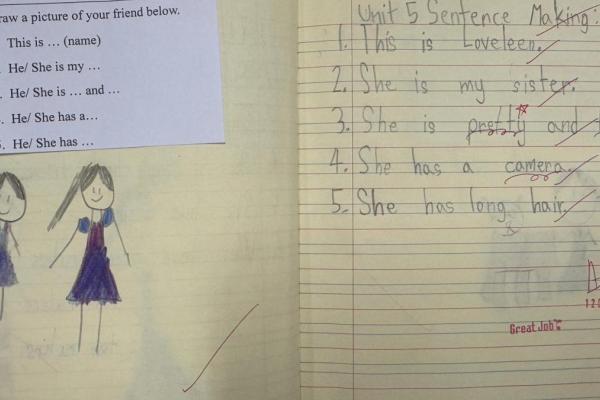 raw a picture of your friend below.
This is … (name)
He/ She is my …
He/ She is … and …
He/ She has a…
He/ She has …
Unit 5 Sentence Making:
1. This is Loveleen.
2. She is my sister.
3. She is pretty and
4. She has a camera.
5. She has long hair
Great Job